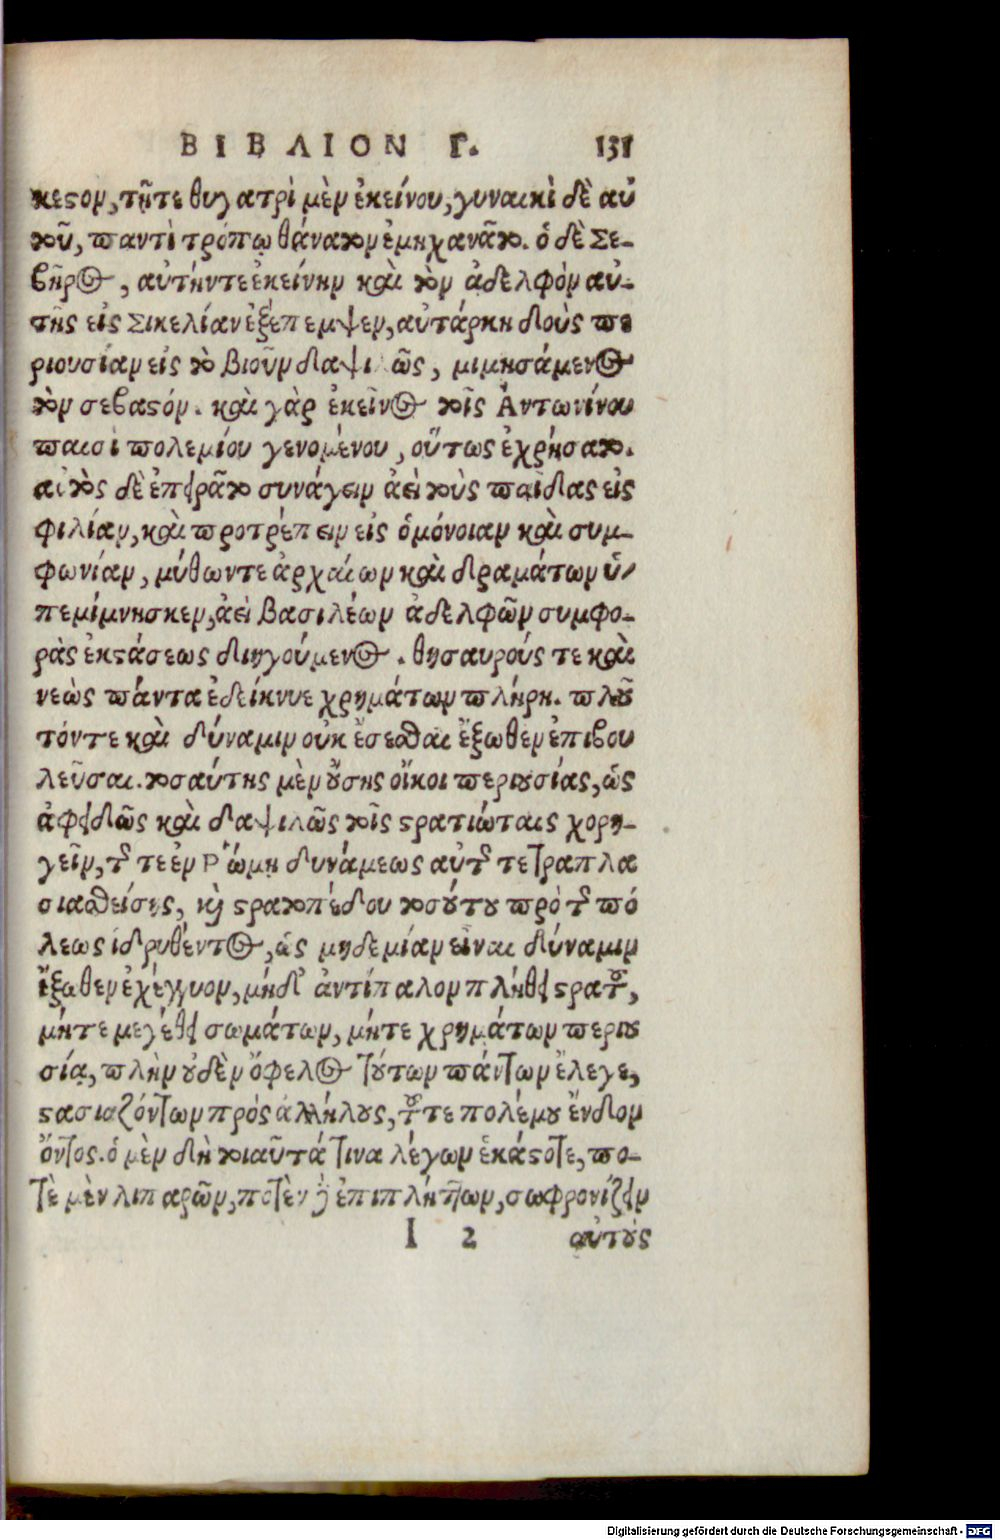 ΒΙΒΛΙΟΝ Γ. 131
κεστον, τῇ τε θυγατρὶ μὲν ἐκείνου, γυναικὶ δὲ αὐ
τοῦ, παντὶ τρόπῳ θάνατον ἐμηχανᾶτο. ὁ δὲ Σε-
βῆρος, αὐτήν τε ἐκείνην καὶ τὸν ἀδελφὸν αὐ-
τῆς εἰς Σικελίαν ἐξέπεμψεν, αὐτάρκη δοὺς πε
ριουσίαν εἰς τὸ βιοῦν δαψιλῶς, μιμησάμενος
τὸν σεβαστόν. καὶ γὰρ ἐκεῖνος τοῖς Ἀντωνίνου
παισὶ πολεμίου γενομένου, οὕτως ἐχρήσατο.
αὐτὸς δὲ ἐπειρᾶτο συνάγειν ἀεὶ τοὺς παῖδας εἰς
φιλίαν, καὶ προτρέπειν εἰς ὁμόνοιαν καὶ συμ-
φωνίαν, μύθων τε ἀρχαίων καὶ δραμάτων ὑ-
πεμίμνησκεν, ἀεὶ βασιλέων ἀδελφῶν συμφο-
ρὰς ἐκ στάσεως διηγούμενος. θησαυρούς τε καὶ
νεὼς πάντα ἐδείκνυε χρημάτων πλήρη. πλοῦ
τόν τε καὶ δύναμιν οὐκ ἔσεσθαι ἔξωθεν ἐπιβου
λεῦσαι. τοσαύτης μὲν οὔσης οἴκοι περιουσίας, ὡς
ἀφειδῶς καὶ δαψιλῶς τοῖς στρατιώταις χορη-
γεῖν, τῆς τε ἐν Ῥώμη δυνάμεως αὐτῆς τετραπλα
σιασθείσης, καὶ στρατοπέδου τοσούτου πρὸ τῆς πό
λεως ἱδρυθέντος, ὡς μηδεμίαν εἶναι δύναμιν
ἔξωθεν ἐχέγγυον, μήδ' ἀντίπαλον πλήθει στρατοῦ,
μήτε μεγέθει σωμάτων, μήτε χρημάτων περιου
σίᾳ, πλὴν οὐδὲν ὄφελος τούτων πάντων ἔλεγε,
στασιαζόντων πρὸς ἀλλήλους, τοῦ τε πολέμου ἔνδον
ὄντος. ὁ μὲν δὴ τοιαῦτά τινα λέγων ἑκάστοτε, πο-
τὲ μὲν λιπαρῶν, ποτὲ δὲ καὶ ἐπιπλήττων, σωφρονίζειν
I 2 αὐτοὺς
Digitalisierung gefördert durch die Deutsche Forschungsgemeinschaft - DFG